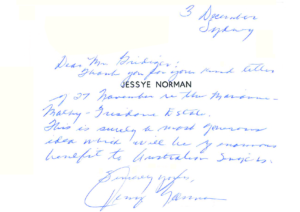 3 December
Sydney
Dear Mr.
Thank you for your kind letter
JESSYE NORMAN
of 27 November re the
Estate.
This is surely a most generous
idea which will be of enormous
benefit to Australian Singers.
Sincerely yours,
Jessye Norman